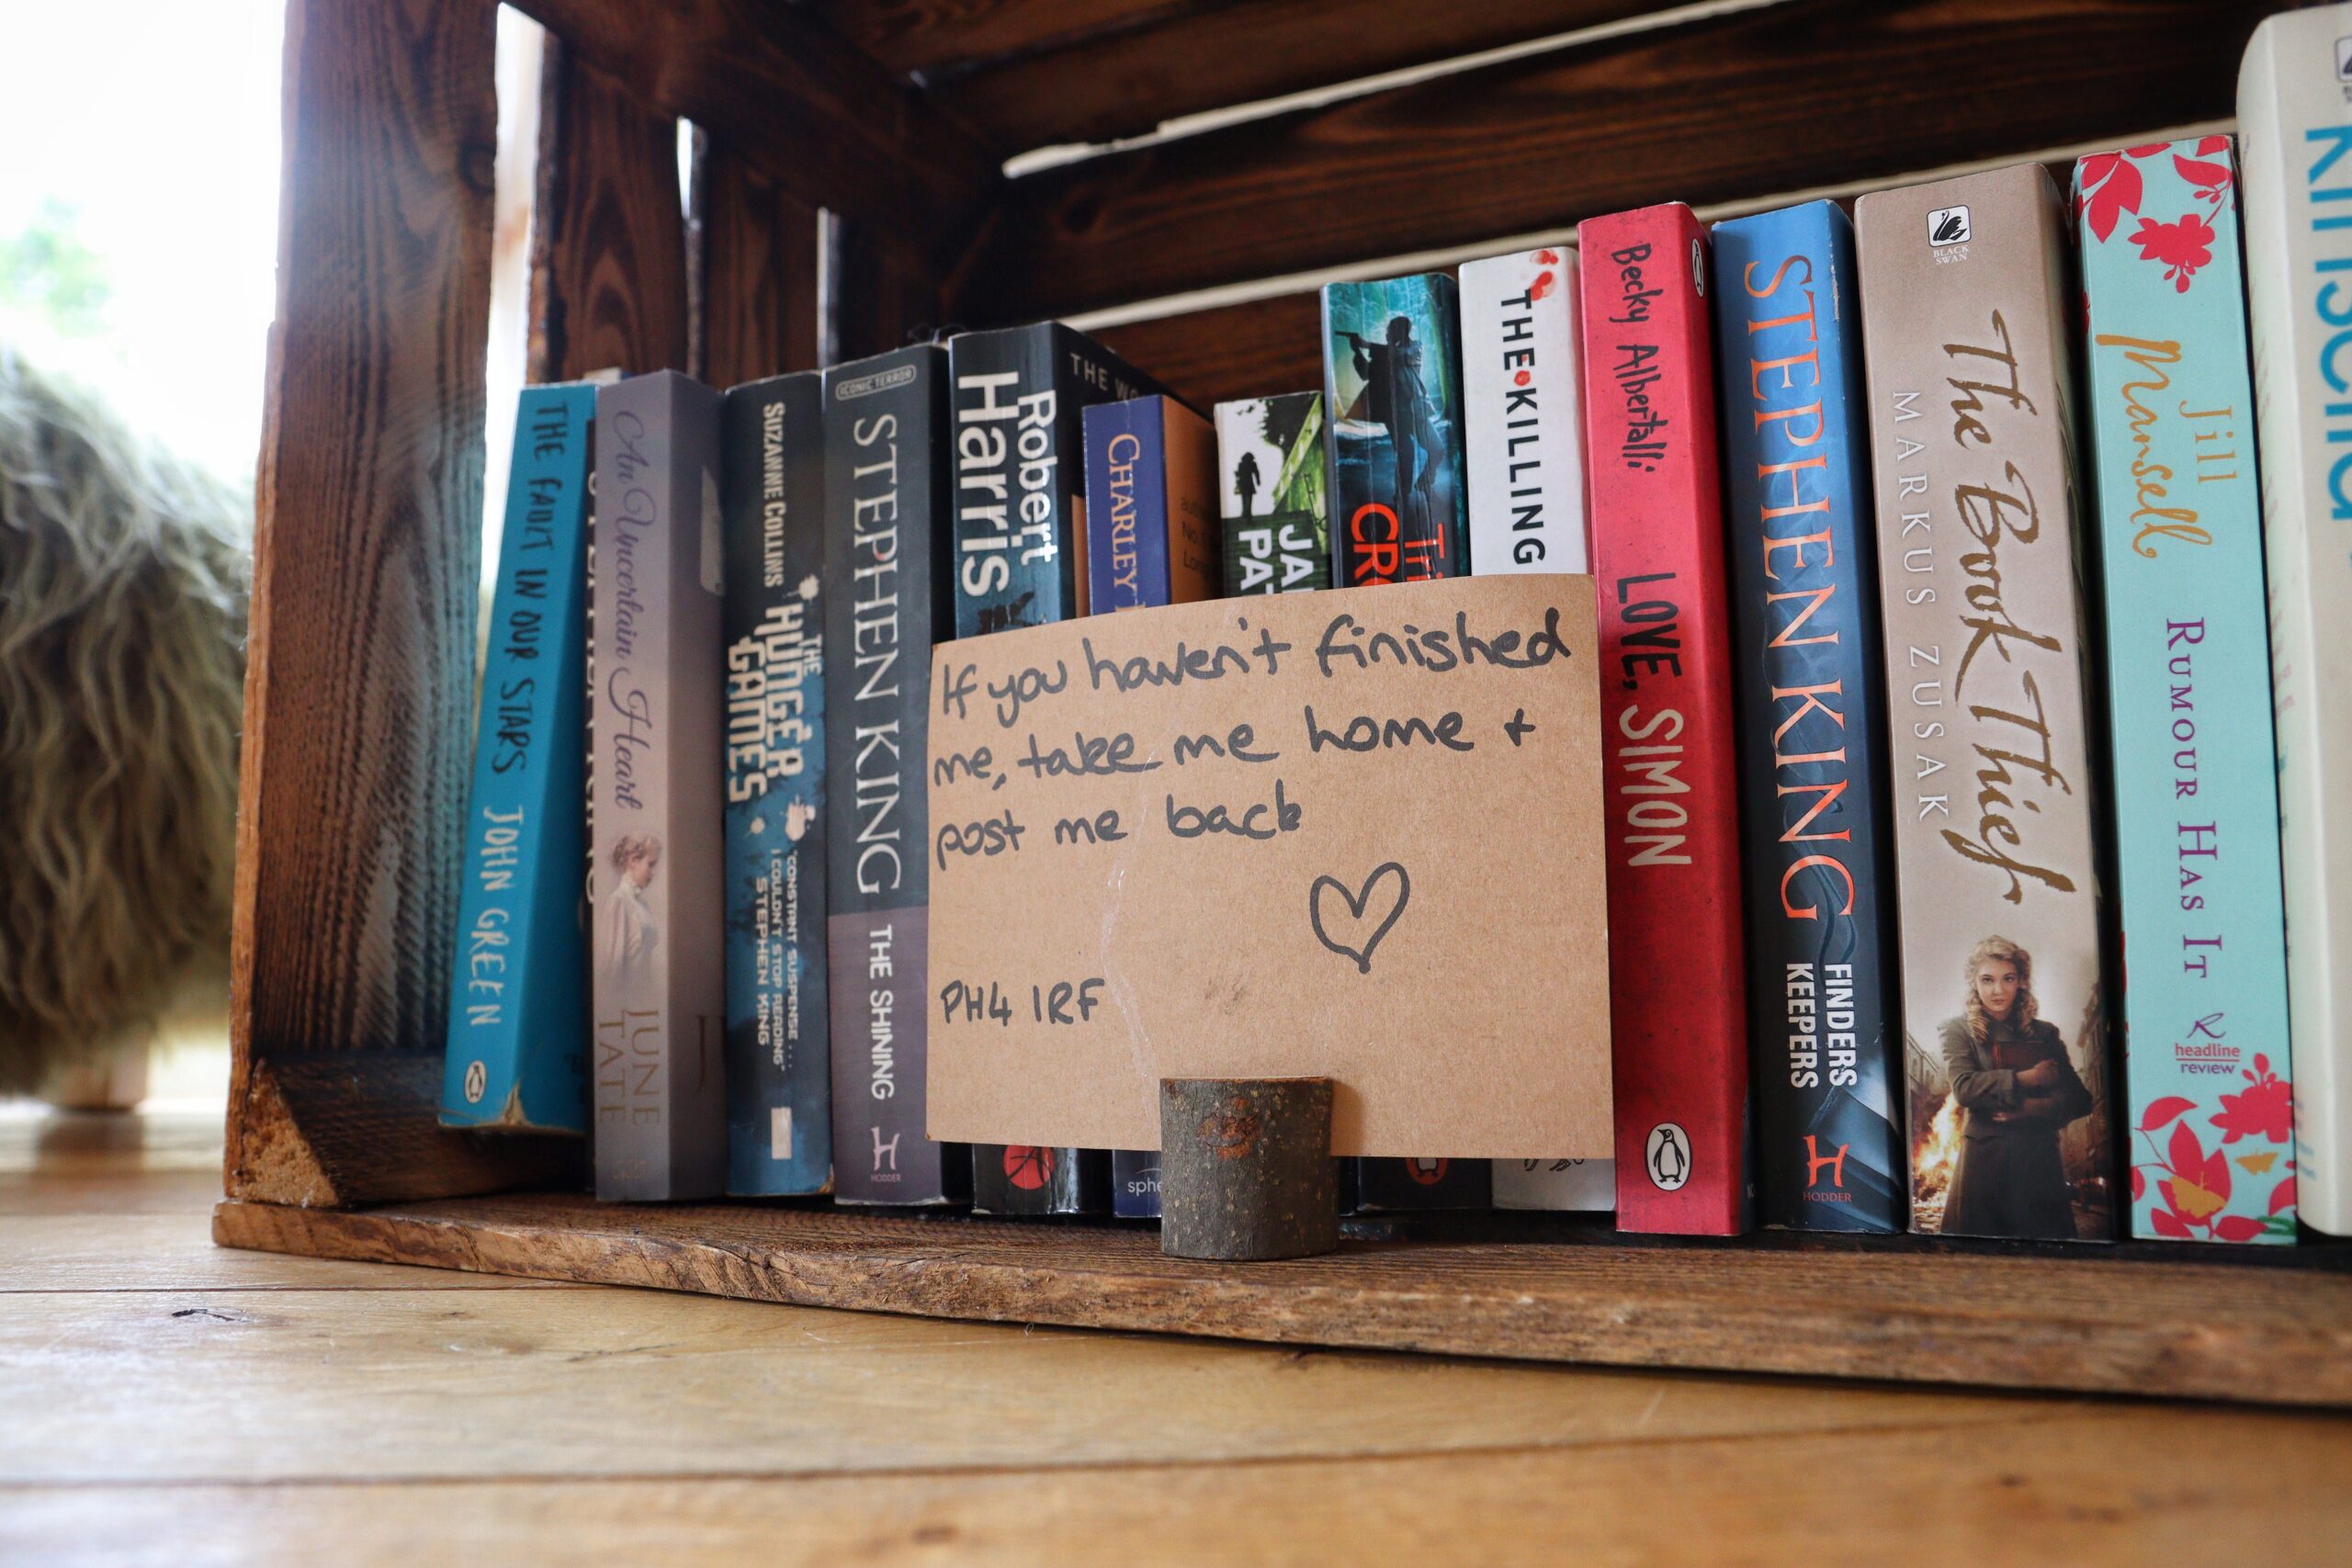 THE FAULT IN OUR STARS JOHN GREEN
An Uncertain Heart
JUNE TATE
SUZANNE COLLINS
THE HUNGER GAMES
"CONSTANT SUSPENSE...
I COULDN'T STOP READING"
STEPHEN KING
ICONIC TERROR
STEPHEN KING THE SHINING
HODDER
Robert
Harris
CHARLEY
THE KILLING
If you haven't finished
me, take me home +
post me back
PH4 1RF
Becky Albertalli LOVE, SIMON
STEPHEN KING
FINDERS
KEEPERS
HODDER
BLACK
SWAN
The Book Thief
MARKUS ZUSAK
Jill
Mansell
RUMOUR HAS IT
headline
review